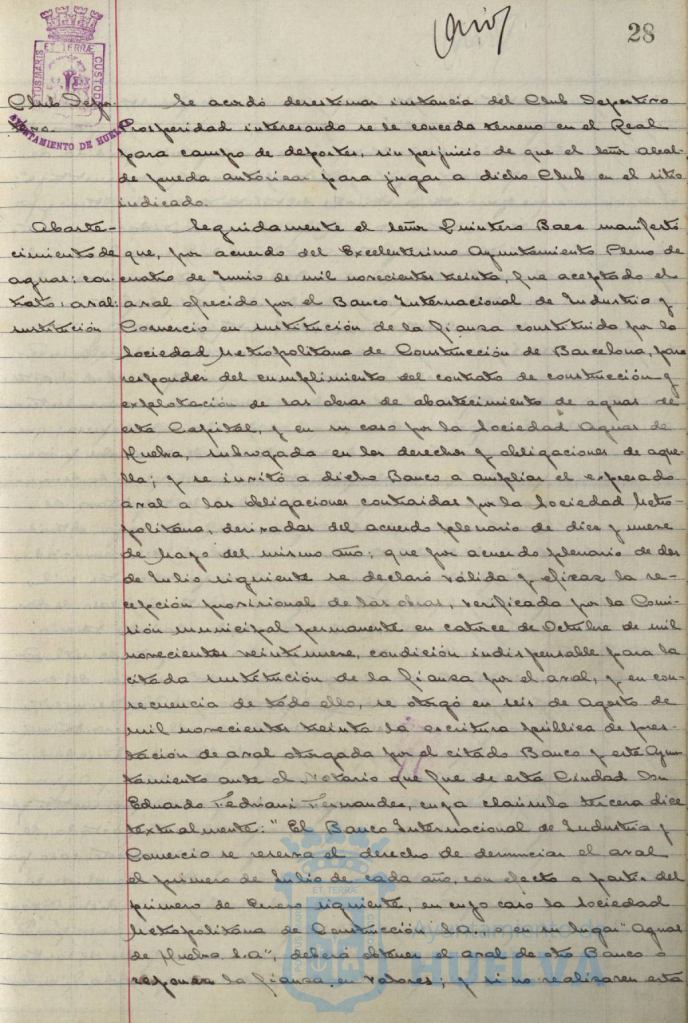 28
PORTUS MARIS ET TERRÆ CUSTODIA
AYUNTAMIENTO DE HUELVA
Club Depor-
tivo.
Se acordó desestimar instancia del Club Deportivo
Prosperidad interesando se le conceda terreno en el Real
para campo de deportes, sin perjuicio de que el señor Alcal-
de pueda autorizar para jugar a dicho Club en el sitio
indicado.
Abaste-
cimiento de
aguas: con-
trato: aval:
sustitución
Seguidamente el señor Quintero Baez manifestó
que, por acuerdo del Excelentísimo Ayuntamiento Pleno de
cuatro de Junio de mil novecientos treinta, fue aceptado el
aval ofrecido por el Banco Internacional de Industria y
Comercio en sustitución de la fianza constituida por la
Sociedad Metropolitana de Construcción de Barcelona, para
responder del cumplimiento del contrato de construcción y
explotación de las obras de abastecimiento de aguas de
esta Capital, y en su caso por la Sociedad Aguas de
Huelva, subrogada en los derechos y obligaciones de aque-
lla; y se invitó a dicho Banco a ampliar el expresado
aval a las obligaciones contraidas por la Sociedad Metro-
politana, derivadas del acuerdo plenario de diez y nueve
de Mayo del mismo año; que por acuerdo plenario de dos
de Julio siguiente se declaró válida y eficaz la re-
cepción provisional de las obras, verificada por la Comi-
sión municipal permanente en catorce de Octubre de mil
novecientos veintinueve, condición indispensable para la
citada sustitución de la fianza por el aval, y en con-
secuencia de todo ello, se otorgó en seis de Agosto de
mil novecientos treinta la escritura pública de pres-
tación de aval otorgada por el citado Banco y este Ayun-
tamiento ante el Notario que fue de esta Ciudad Don
Eduardo Fedriani Fernandez, cuya cláusula tercera dice
textualmente: "El Banco Internacional de Industria y
Comercio se reserva el derecho de denunciar el aval
el primero de Julio de cada año, con efecto a partir del
primero de Enero siguiente, en cuyo caso la Sociedad
Metropolitana de Construcción S.A. o en su lugar "Aguas
de Huelva S.A", deberá obtener el aval de otro Banco o
reponer la fianza en valores; y si no realizaren esta
HUELVA